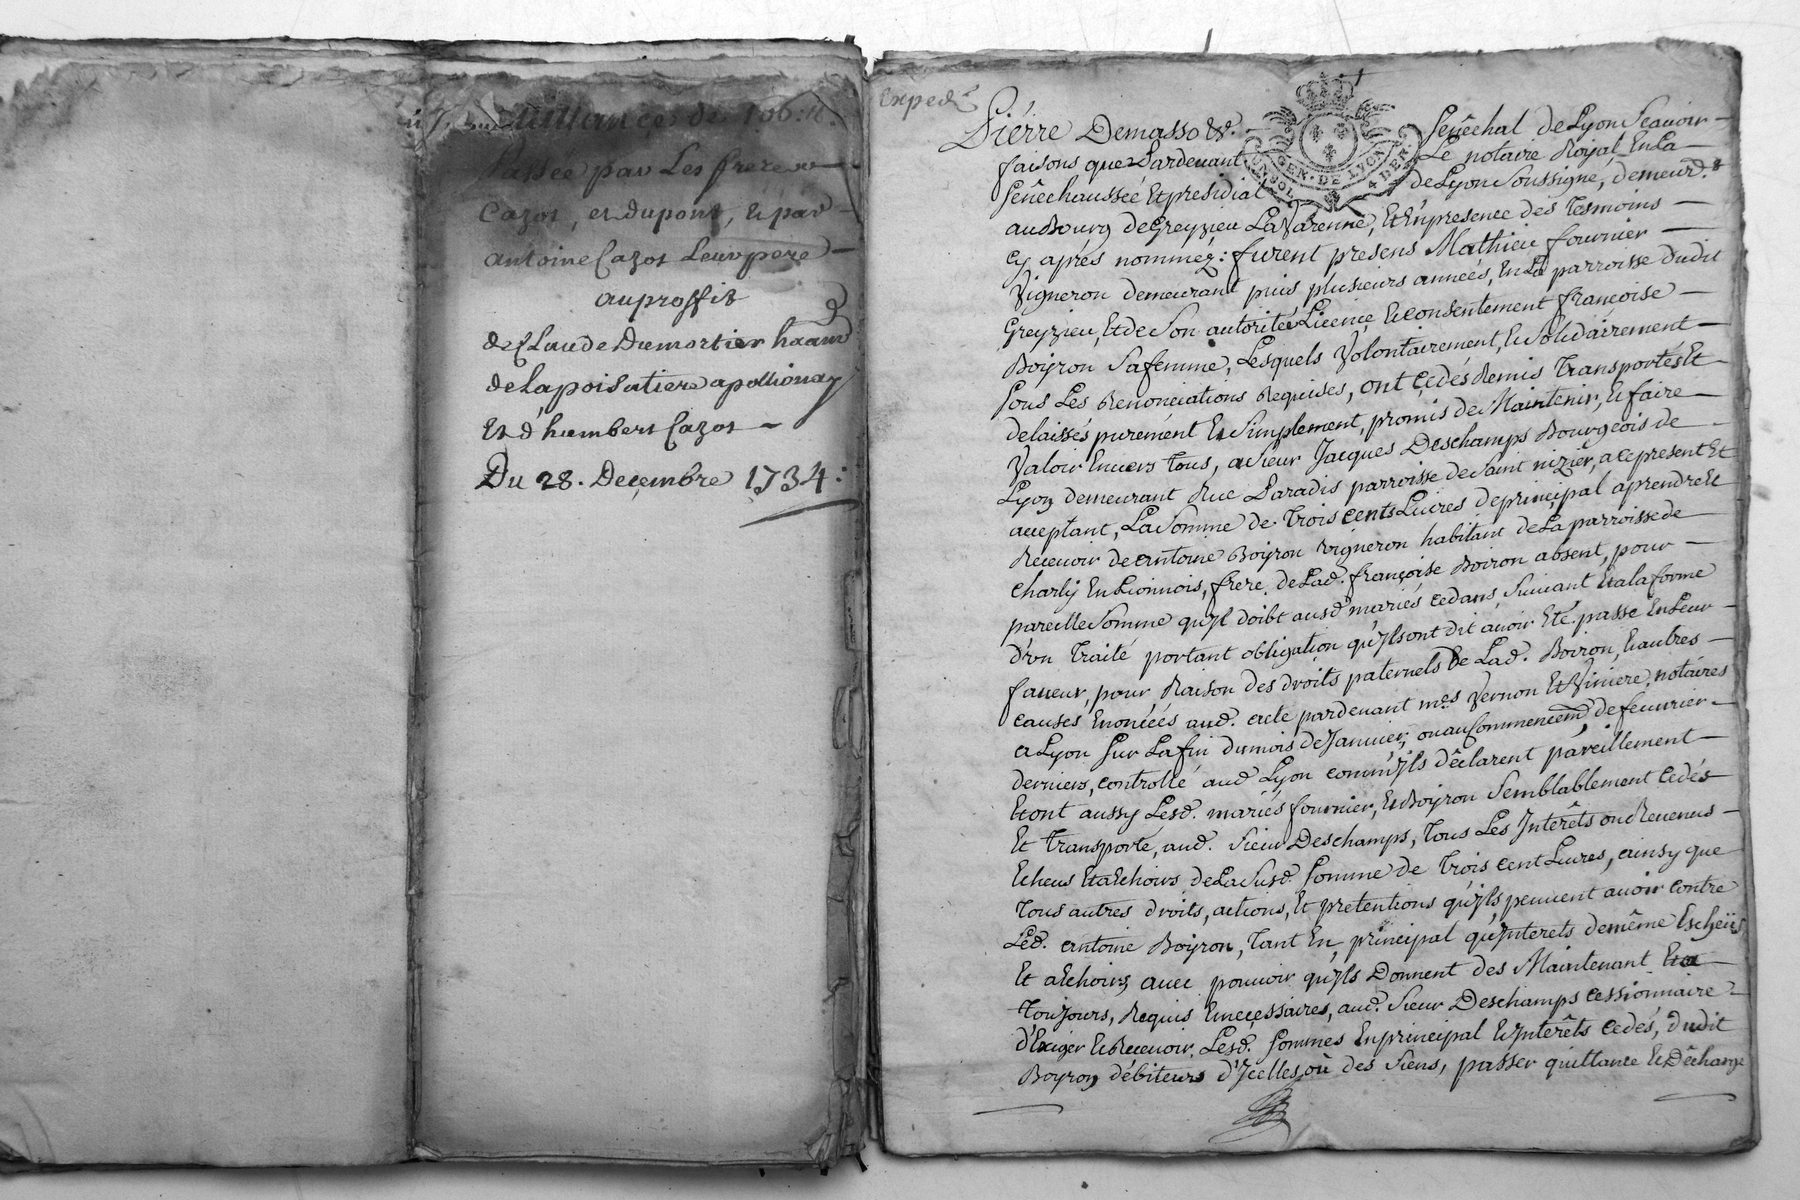 quittance de 166:ll.
Passée par Les freres
Cazot, et dupont, & par
antoine Cazot Leur pere
au proffit
de Claude Dumortier haant
de Lapoisatiere a pollionay
Et d'humbert Cazot
Du 28. Deçembre 1734:
Expedé
Piérre Demasso &c. Senêchal de Lyon Scauoir
faisons que Pardeuant Le notaire Royal En La
Senêchaussée Et presidial de Lyon Soussigné, demeurd.t
au Bourg de Greyzieu LaVarenne, Et En presence des Tesmoins
cy aprés nommez: furent presens Mathieu fournier
Vigneron demeurant puis plusieurs années, En La parroisse dudit
Greyzieu, Et de Son autorité Licence & consentement françoise
Boyron Sa femme, Lesquels Volontairement, & Solidairement
Sous Les Renonciations Requises, ont Çedés Remis Transportés Et
delaissés purément & Simplement, promis de Maintenir, & faire
Valoir Enuers Tous, a Sieur Jacques Deschamps Bourgeois de
Lyon demeurant Rue Paradis parroisse de Saint nizier, a ce present Et
acceptant, La Somme de Trois cents Liures de principal a prendre Et
Receuoir de antoine Boyron vigneron habitant de La parroisse de
Charly En Lionnois, frere de Lad. françoise Boiron absent, pour
pareille Somme qu'Jl doibt ausd mariés cedans, Suiuant Et a la forme
d'vn Traité portant obligation qu'Jls ont dit auoir Eté passé En Leur
faueur, pour Raison des droits paternels de Lad. Boiron, & autres
causes Enoncéés aud. acte pardeuant mes Vernon Et Viniere, notaires
a Lyon Sur La fin du mois de Januier, ou au Commencemd de feurier
derniers, controllé aud Lyon comm'Jls dêclarent pareillement
Et ont aussy Lesd. mariés fournier, & Boyron Semblablement cedés
Et transporté, aud. Sieur Deschamps, Tous Les Jnterêts ou Reuenus
Echeus Et a Echoirs, de La Susd. Somme de Trois cent Liures, ainsy que
Tous autres droits, actions, Et pretentions qu'Jls peuuent auoir contre
Led. antoine Boyron, Tant En principal qu'Jnterets de même Escheüs
Et a Echoirs auec pouuoir qu'Jls Donnent des Maintenant Et a
Toujours, Requis & neçessaires, aud. Sieur Deschamps cessionnaire
d'Exiger & Receuoir Lesd. Sommes En principal & Jnterêts cedés, dudit
Boyron débiteurs d'Jcelles, où des Siens, passer quittance & Dêcharge
GEN. DE LYON
4 DEN.